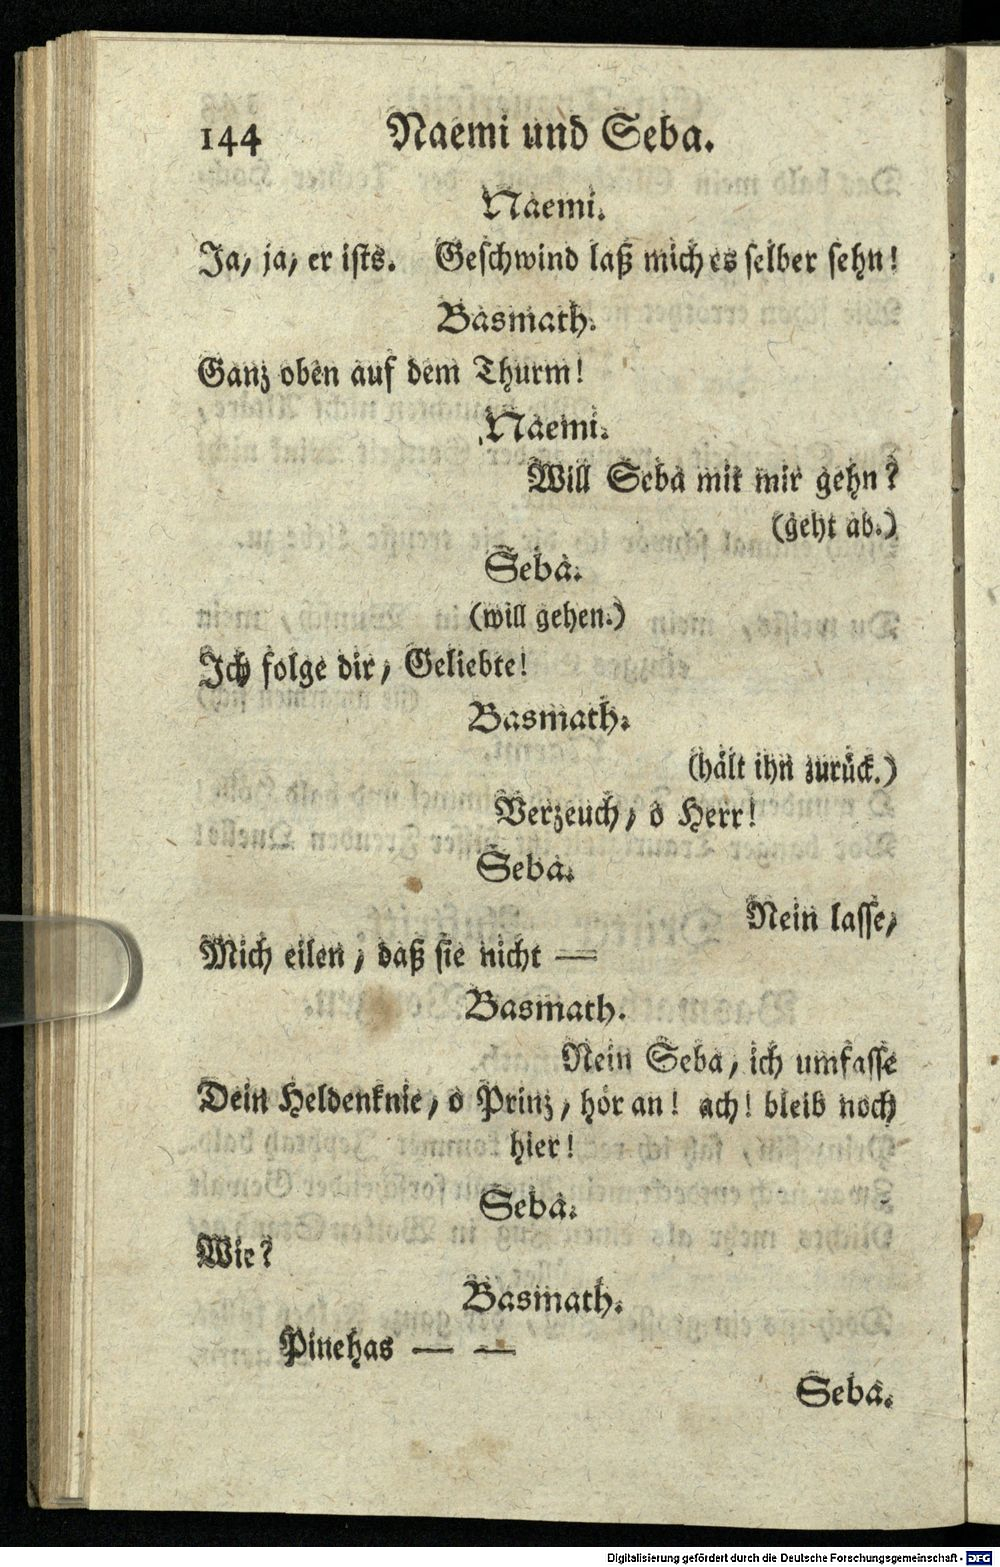 144 Naemi und Seba.
Naemi.
Ja, ja, er ists. Geschwind laß mich es selber sehn!
Basmath.
Ganz oben auf dem Thurm!
Naemi.
Will Seba mit mir gehn?
(geht ab.)
Seba.
(will gehen.)
Ich folge dir, Geliebte!
Basmath.
(hält ihn zurück.)
Verzeuch, o Herr!
Seba.
Nein lasse,
Mich eilen, daß sie nicht —
Basmath.
Nein Seba, ich umfasse
Dein Heldenknie, o Prinz, hör an! ach! bleib noch
hier!
Seba.
Wie?
Basmath.
Pinehas — —
Seba.
Digitalisierung gefördert durch die Deutsche Forschungsgemeinschaft - DFG